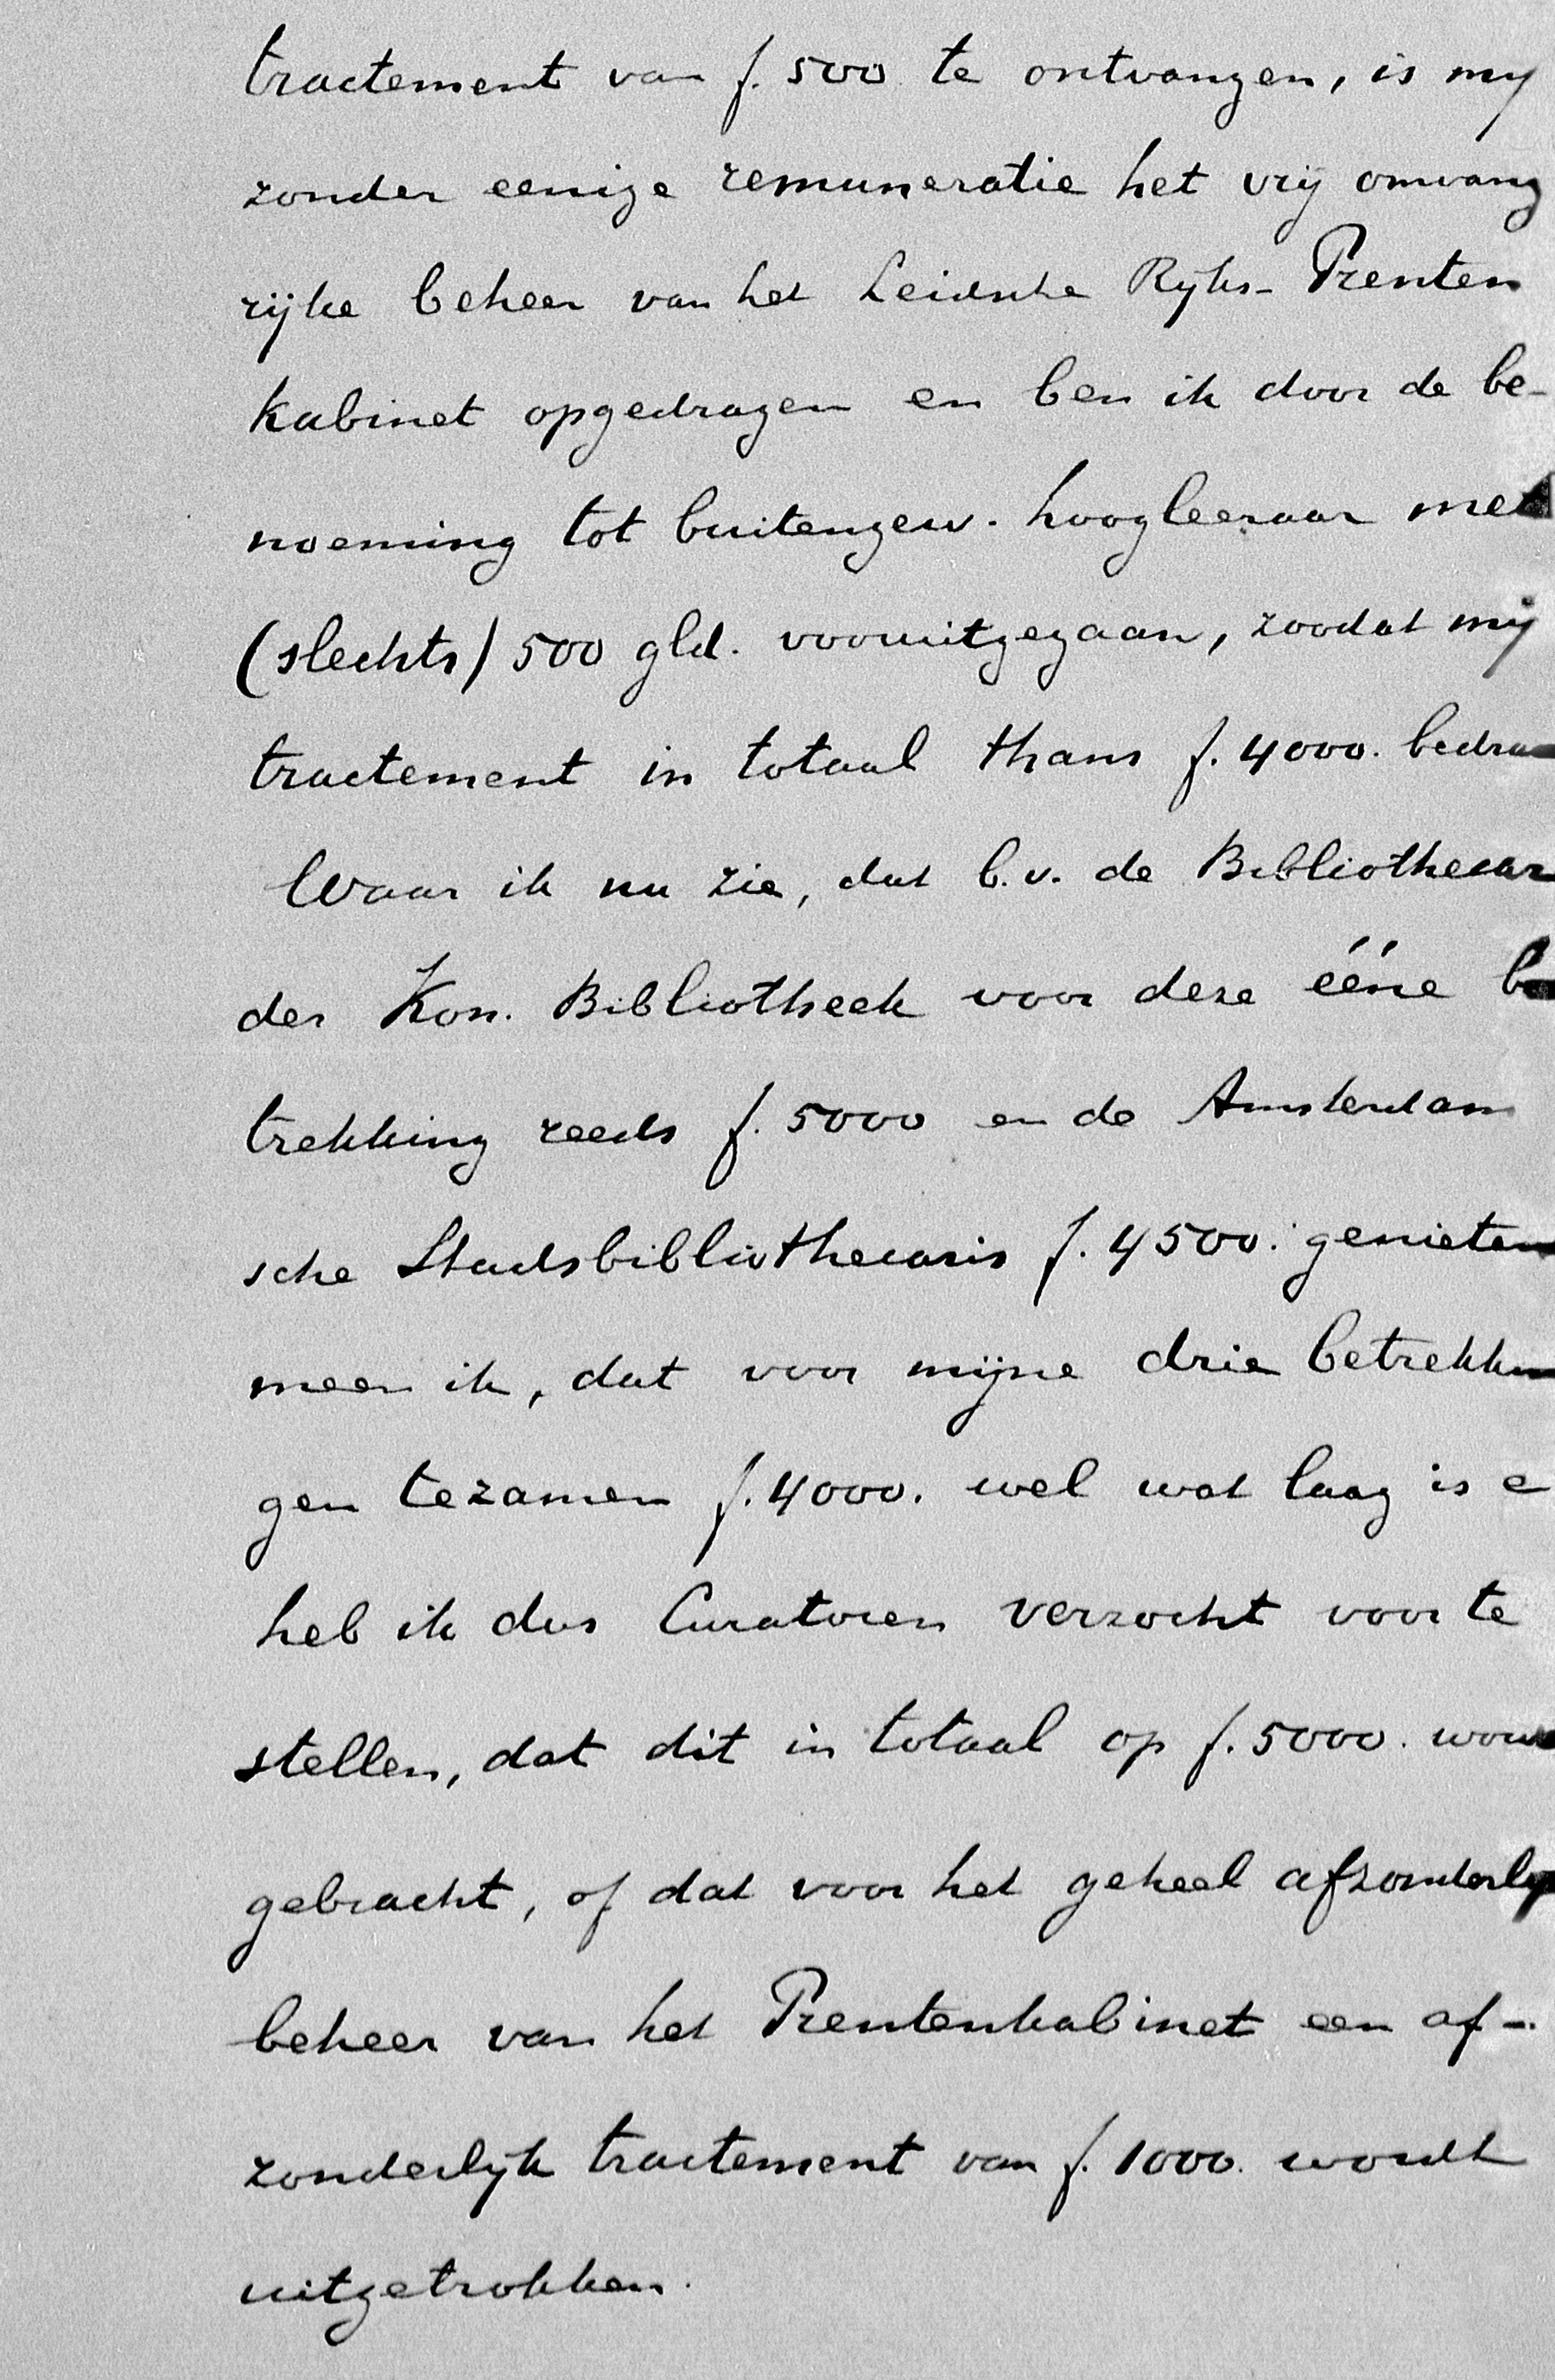 tractement van f. 500 te ontvangen, is my
zonder eenige remuneratie het vrij omvang
rijke beheer van het Leidsche Ryks- Prenten
kabinet opgedragen en ben ik door de be-
noeming tot buitengew. hoogleeraar met
(slechts) 500 gld. vooruitgegaan, zoodat mij
tractement in totaal thans f. 4000. bedra
Waar ik nu zie, dat b.v. de Bibliothecar
der Kon. Bibliotheek voor deze ééne be
trekking reeds f. 5000 en de Amsterdam
sche Stadsbibliothecaris f. 4500. genieten
meen ik, dat voor mijne drie betrekkin
gen tezamen f. 4000. wel wat laag is e
heb ik dus Curatoren verzocht voor te
stellen, dat dit in totaal op f. 5000. wor
gebracht, of dat voor het geheel afzonderly
beheer van het Prentenkabinet een af-
zonderlyk tractement van f. 1000. wordt
uitgetrokken.